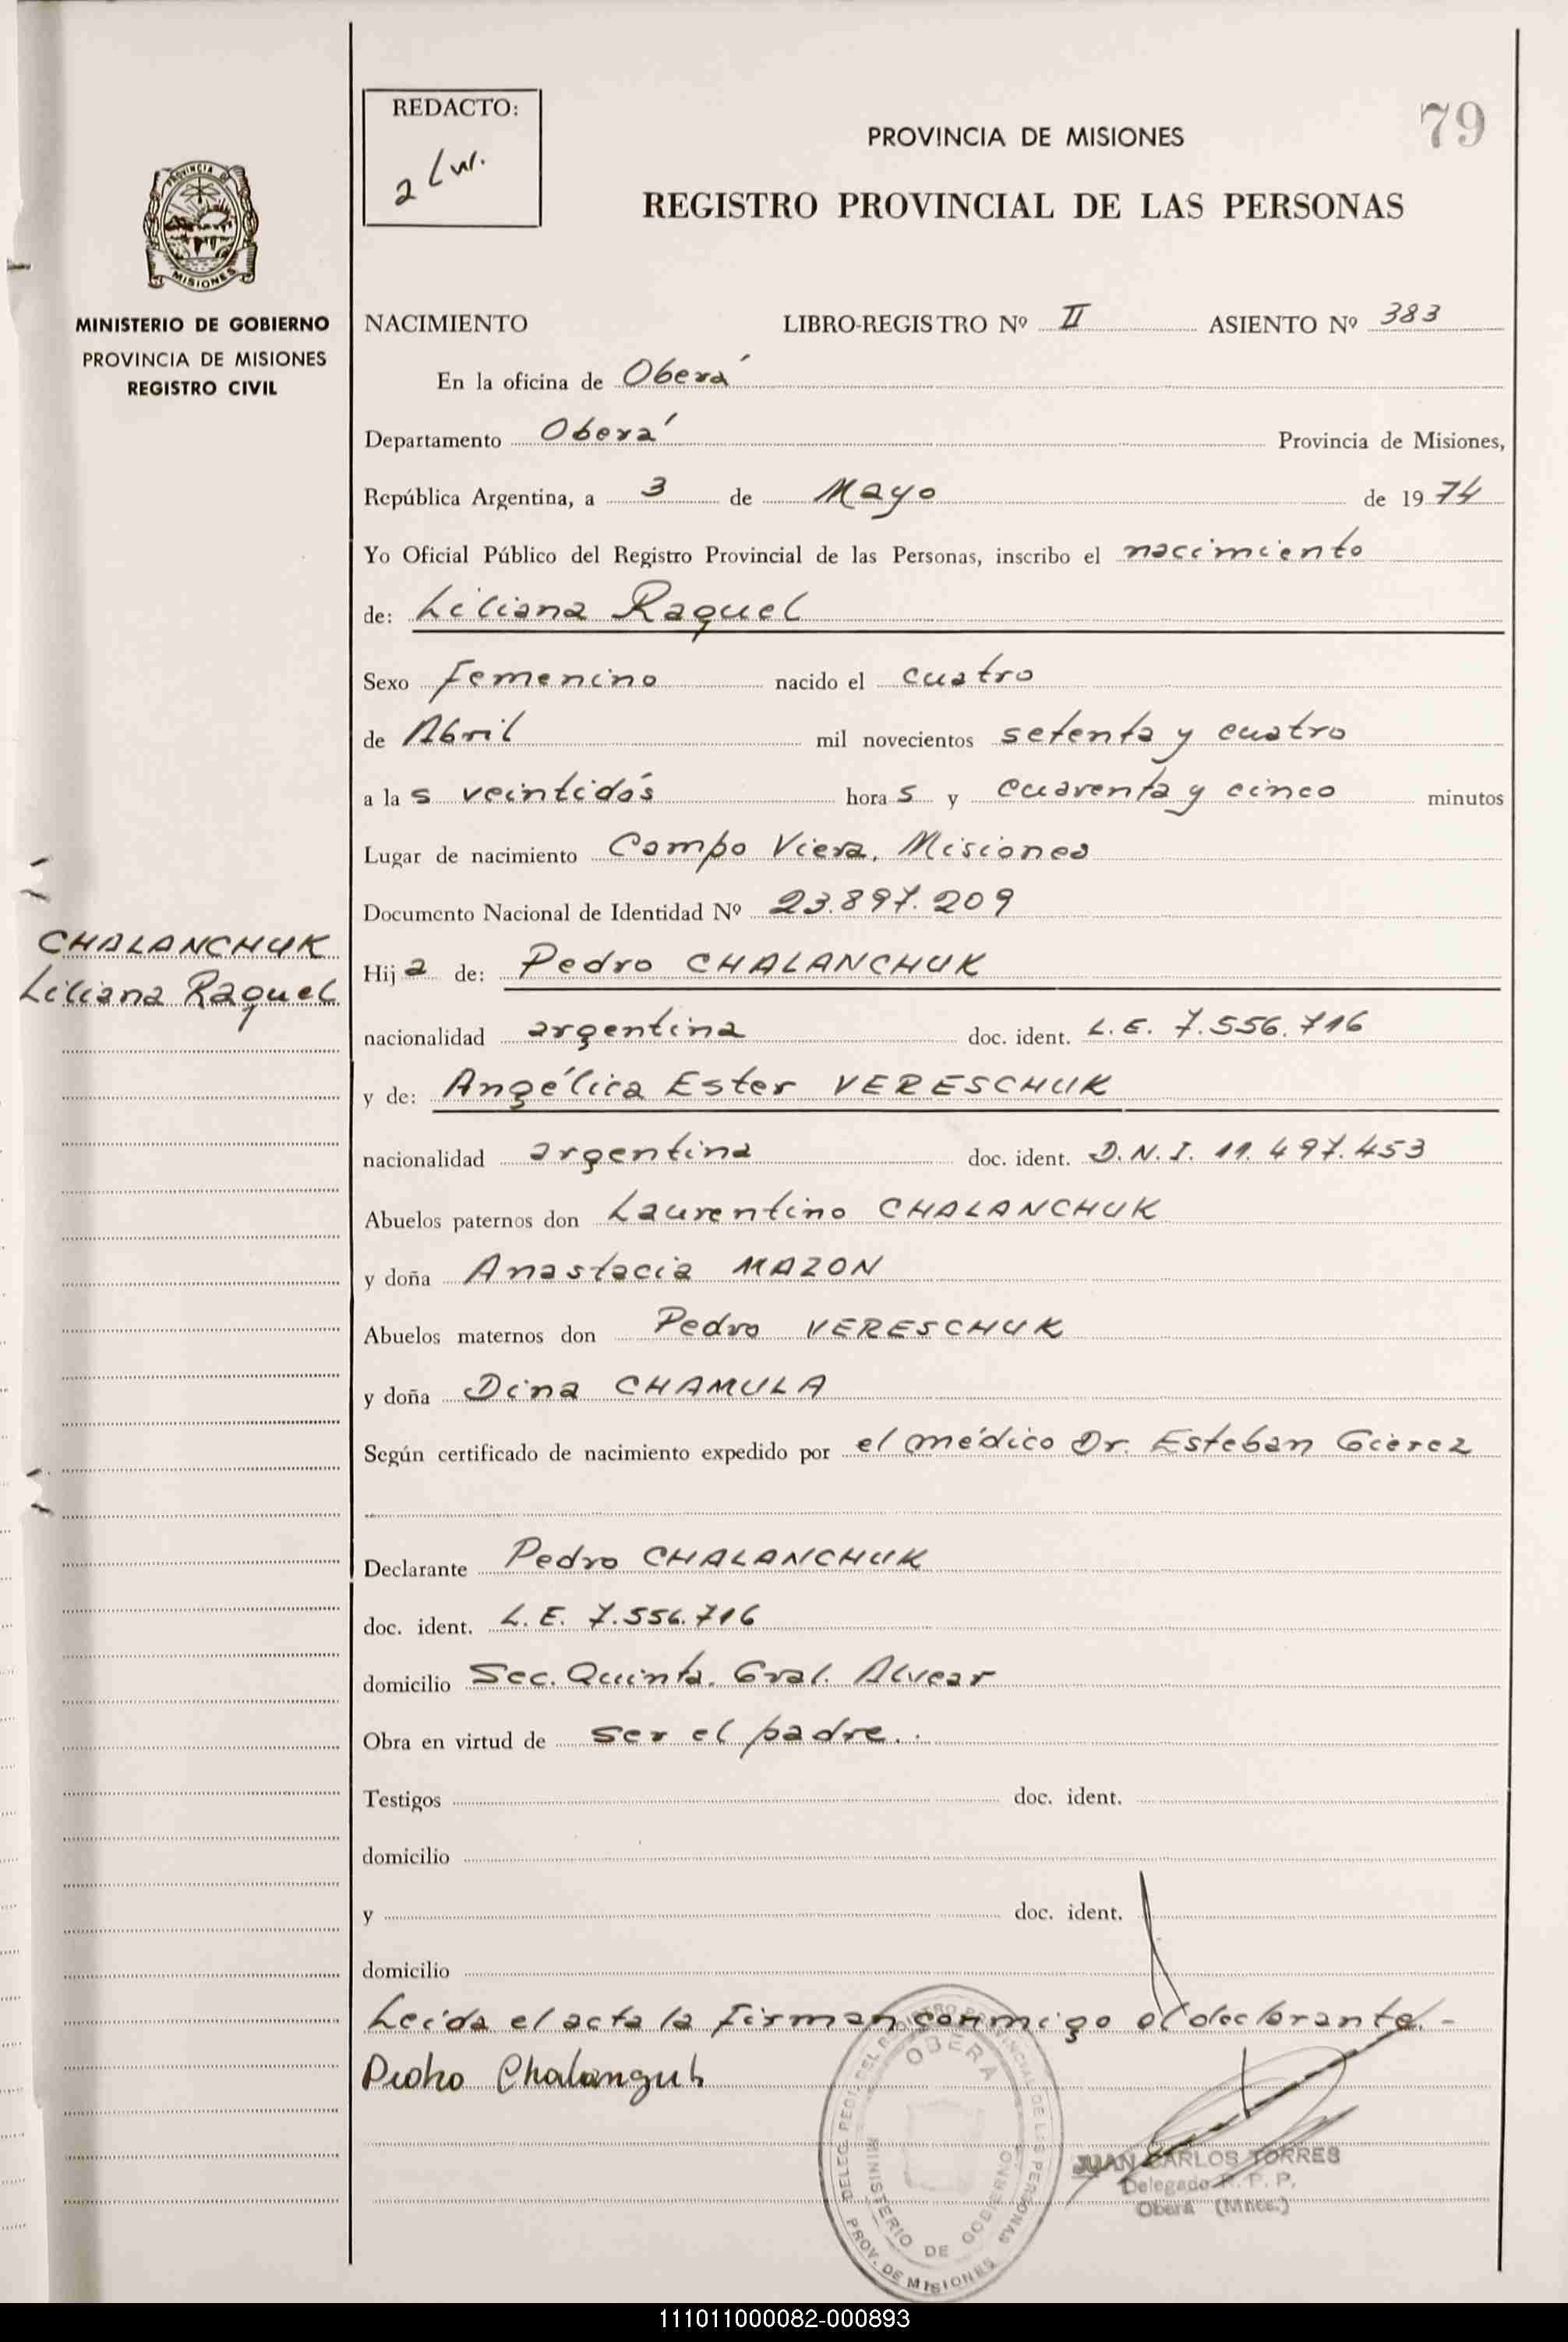 REDACTO:
79
PROVINCIA DE MISIONES
REGISTRO PROVINCIAL DE LAS PERSONAS
MISIONES
MINISTERIO DE GOBIERNO
PROVINCIA DE MISIONES
REGISTRO CIVIL
NACIMIENTO LIBRO-REGISTRO Nº II ASIENTO Nº 383
En la oficina de Oberá
Departamento Oberá Provincia de Misiones,
República Argentina, a 3 de Mayo de 1974
Yo Oficial Público del Registro Provincial de las Personas, inscribo el nacimiento
de: Liliana Raquel
Sexo Femenino nacido el cuatro
de Abril mil novecientos setenta y cuatro
a las veintidós horas y cuarenta y cinco minutos
Lugar de nacimiento Campo Viera, Misiones
Documento Nacional de Identidad Nº 23.897.209
CHALANCHUK
Liliana Raquel
Hija de: Pedro CHALANCHUK
nacionalidad argentina doc. ident. L.E. 7.556.716
y de: Angélica Ester VERESCHUK
nacionalidad argentina doc. ident. D.N.I. 11.497.453
Abuelos paternos don Laurentino CHALANCHUK
y doña Anastacia MAZON
Abuelos maternos don Pedro VERESCHUK
y doña Dina CHAMULA
Según certificado de nacimiento expedido por el médico Dr. Esteban Gierez
Declarante Pedro CHALANCHUK
doc. ident. L.E. 7.556.716
domicilio Sec. Quinta. Gral. Alvear
Obra en virtud de ser el padre.
Testigos doc. ident.
domicilio
y doc. ident.
domicilio
Leída el acta la firman conmigo el declarante.-
Pedro
DELEG. REGL. DEL REGISTRO PROVINCIAL DE LAS PERSONAS
OBERA
MINISTERIO DE GOBIERNO
PROV. DE MISIONES
JUAN CARLOS TORRES
Delegado R. P. P.
Oberá (Mnes.)
111011000082-000893